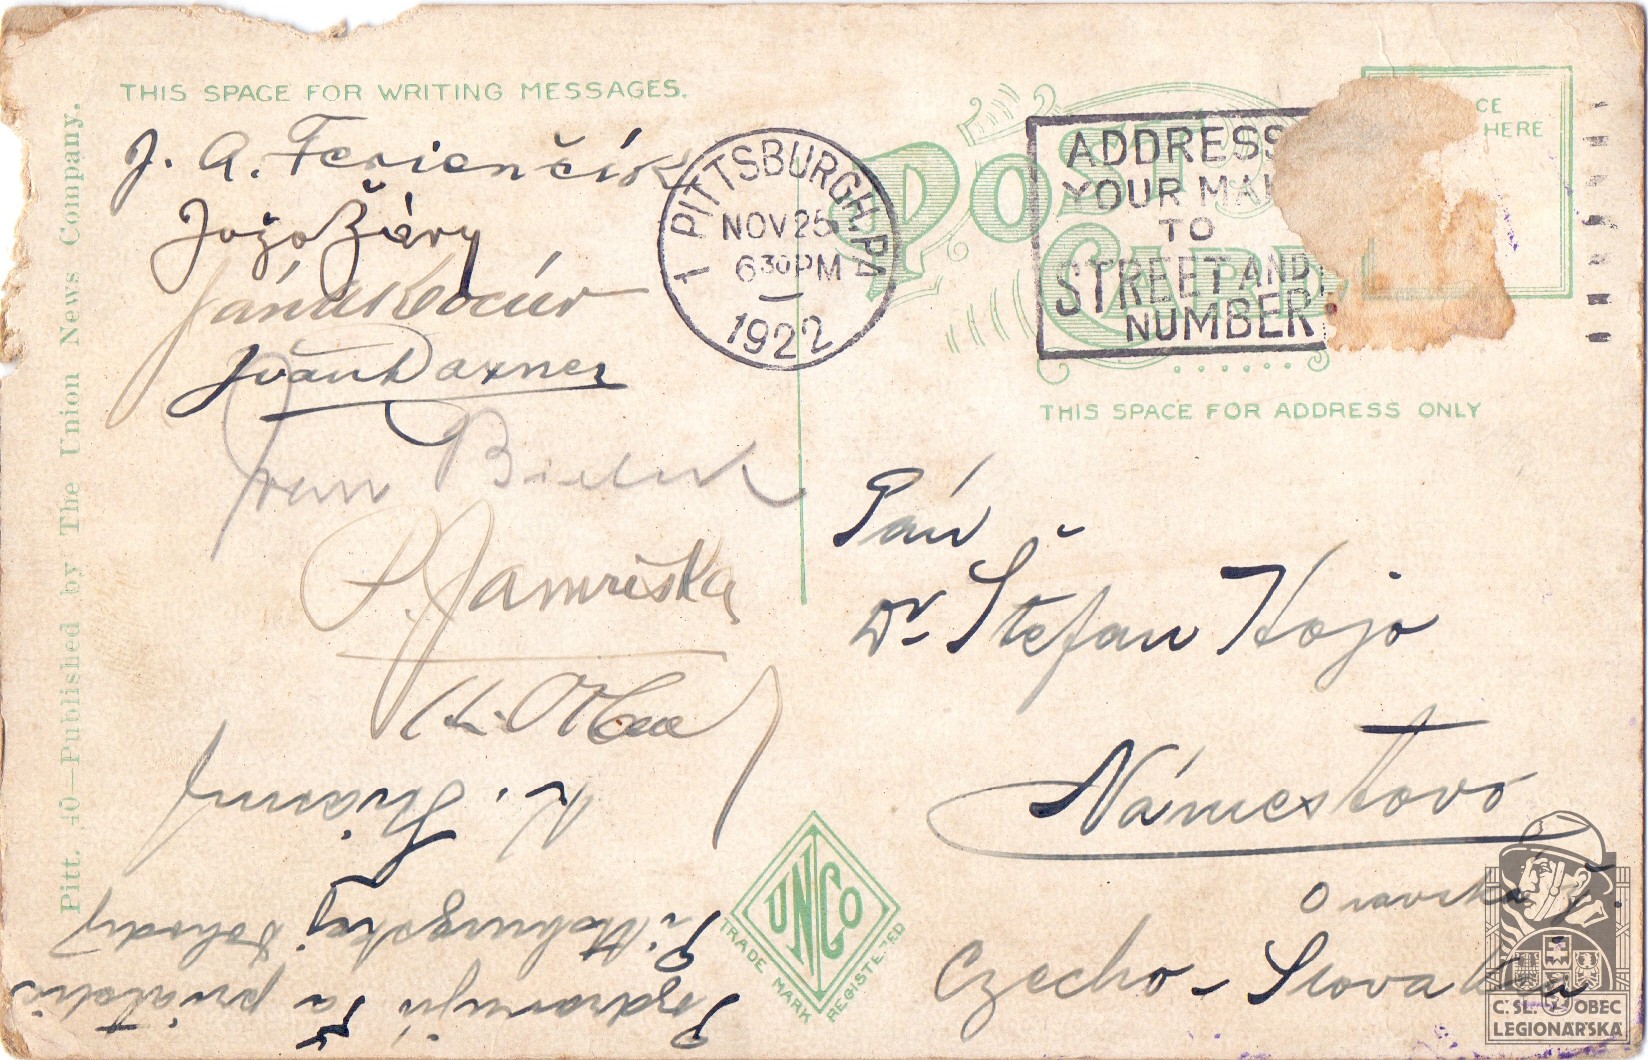 THIS SPACE FOR WRITING MESSAGES.
J. A. Ferienčík
Jožo Žiary
Ján Kocúr
Ivan Daxner
Ivan Bielek
P. Jamriška
K.
Pozdravujú Ťa priatelia
Pittsburgskej dohody
Pitt. 40—Published by The Union News Company.
1 PITTSBURGH, PA
NOV 25
6 30 PM
1922
ADDRESS
YOUR MAI
TO
STREET AND
NUMBER
POST CARD
CE
HERE
THIS SPACE FOR ADDRESS ONLY
Pán
Dr Štefan Hojo
Námestovo
Oravská ž.
Czecho-Slovakia
UNCO
TRADE MARK REGISTERED
Č. SL. OBEC
LEGIONÁŘSKÁ